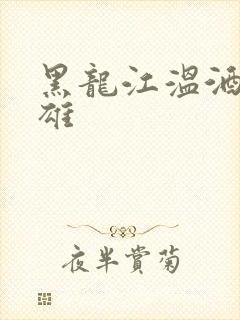 黑龍江溫酒
雄
夜半賞菊